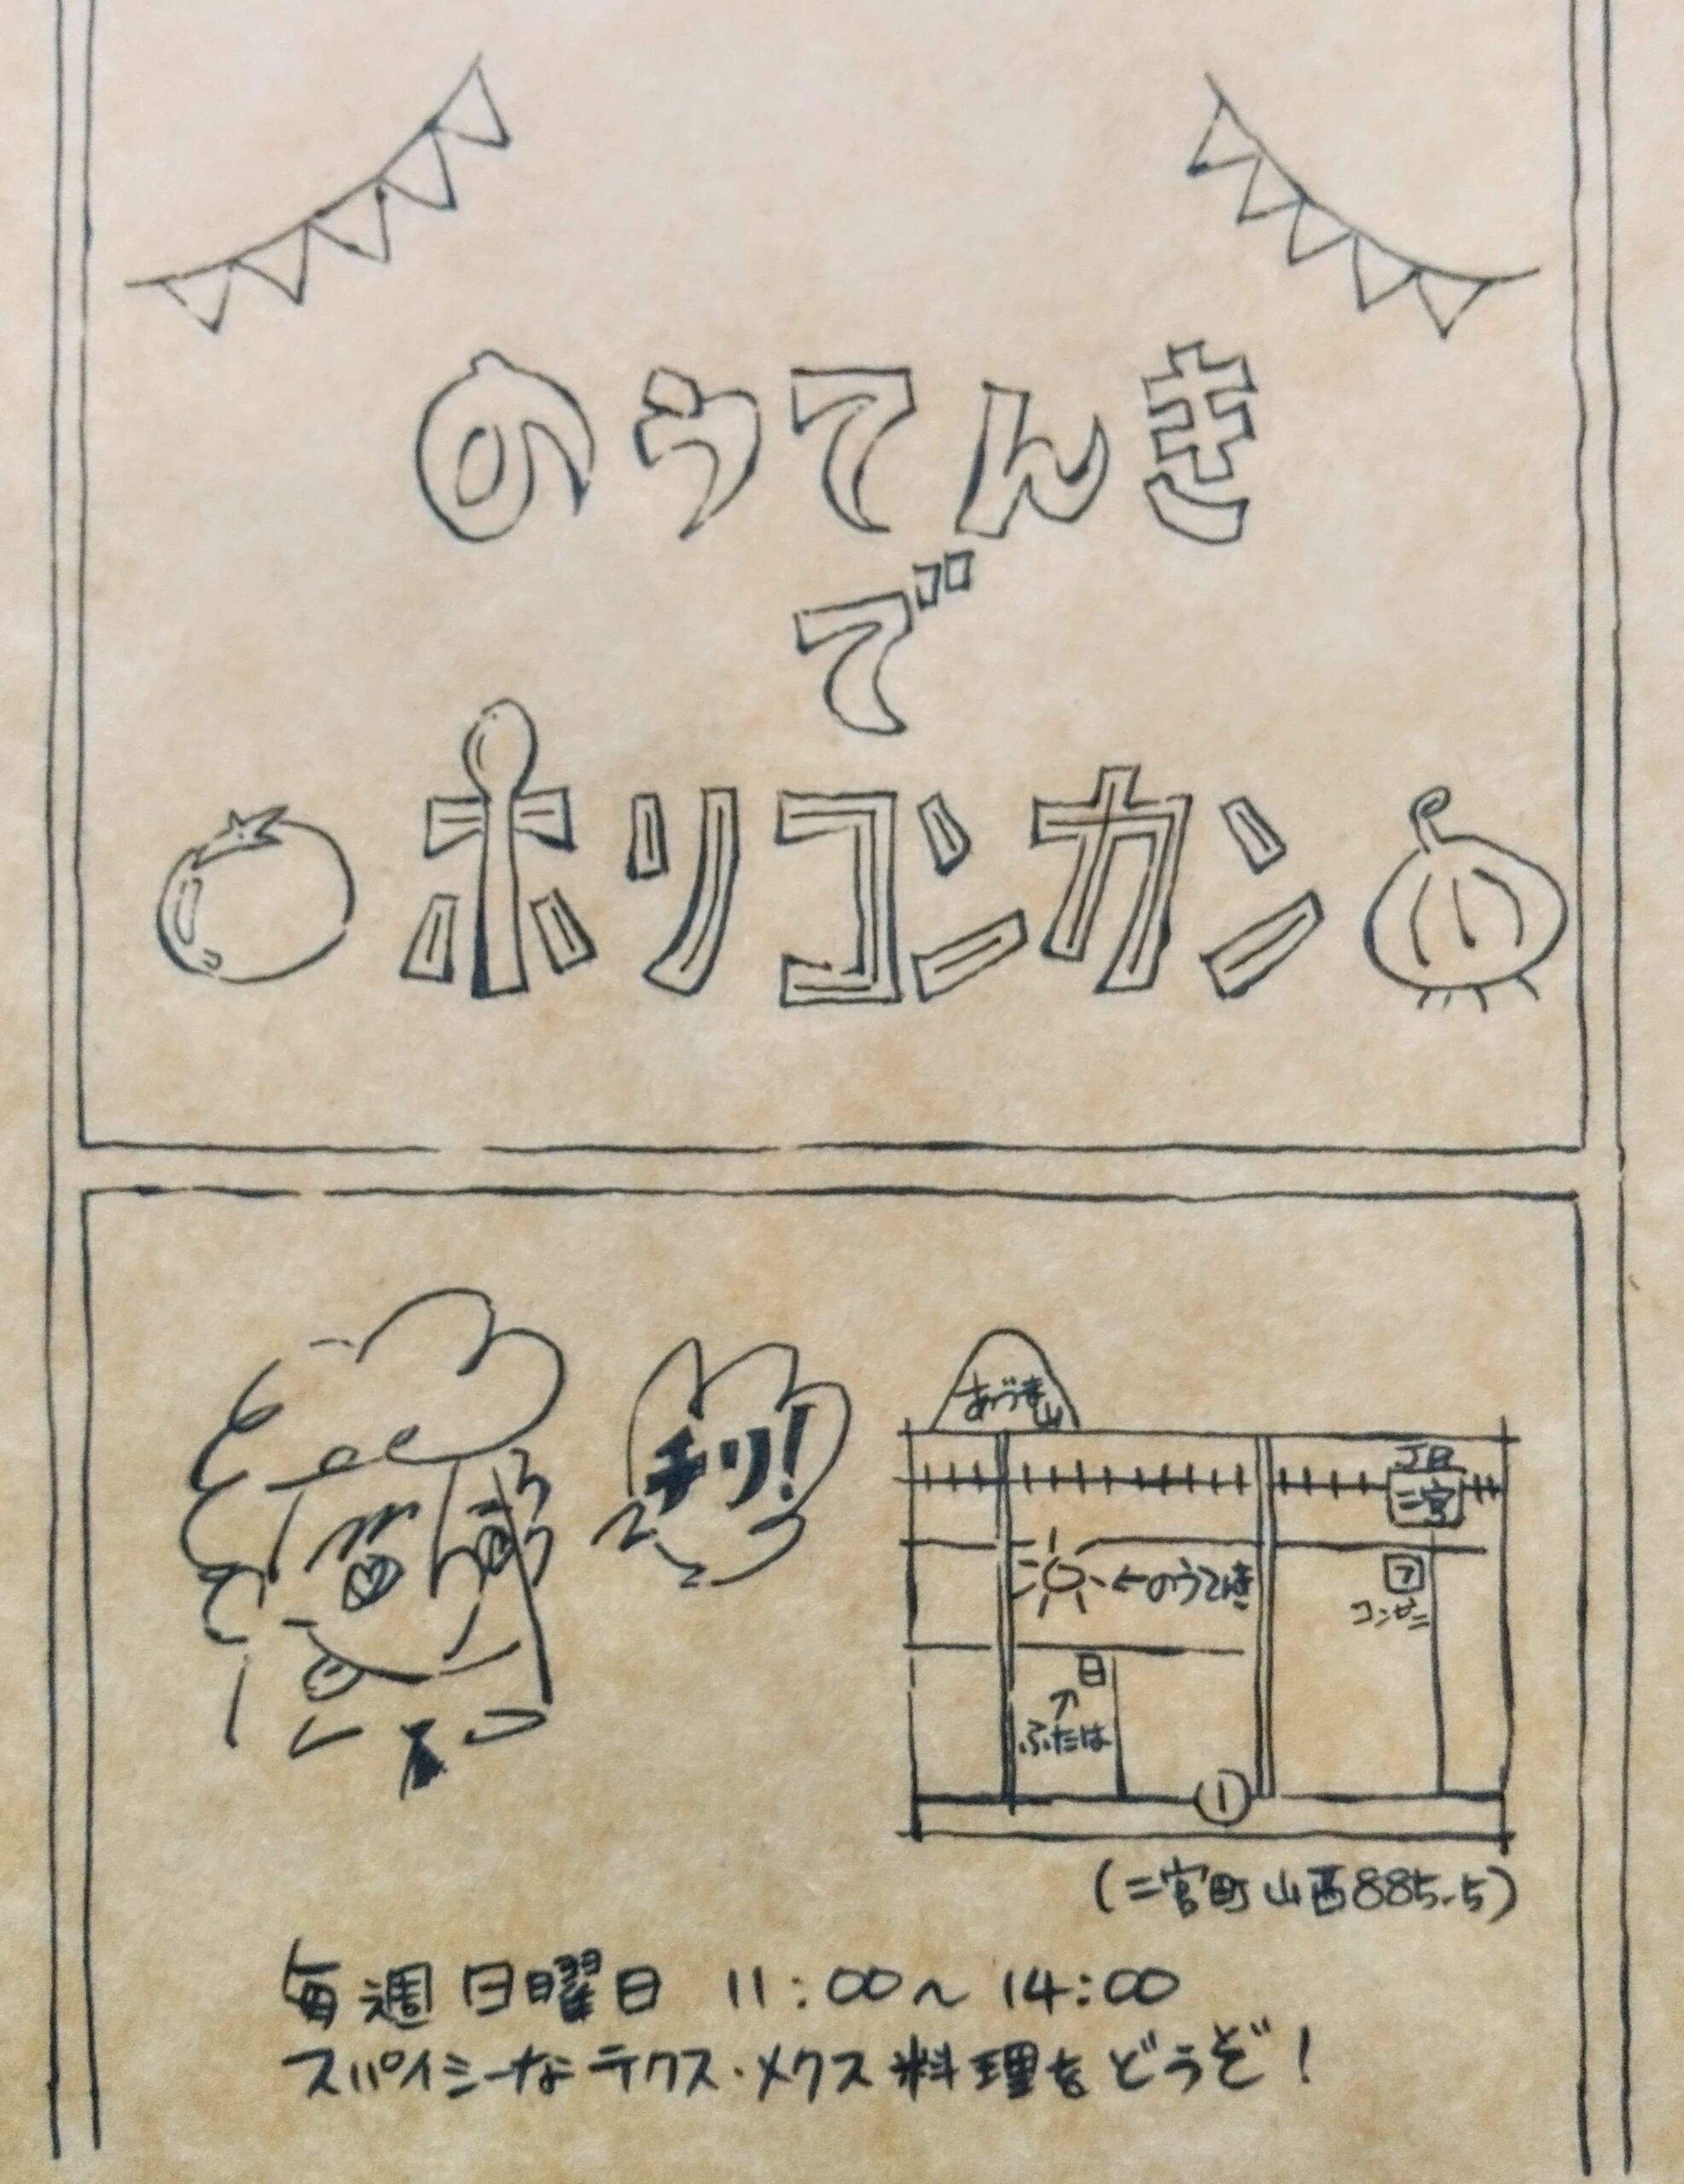 のうてんき
で
ホリコンカン
チリ!
あづま山
JR
二宮
←のうてんき
7
コンビニ
日
↑
ふたは
1
(二宮町山西885-5)
毎週日曜日 11:00~14:00
スパイシーなテクス・メクス料理をどうぞ!